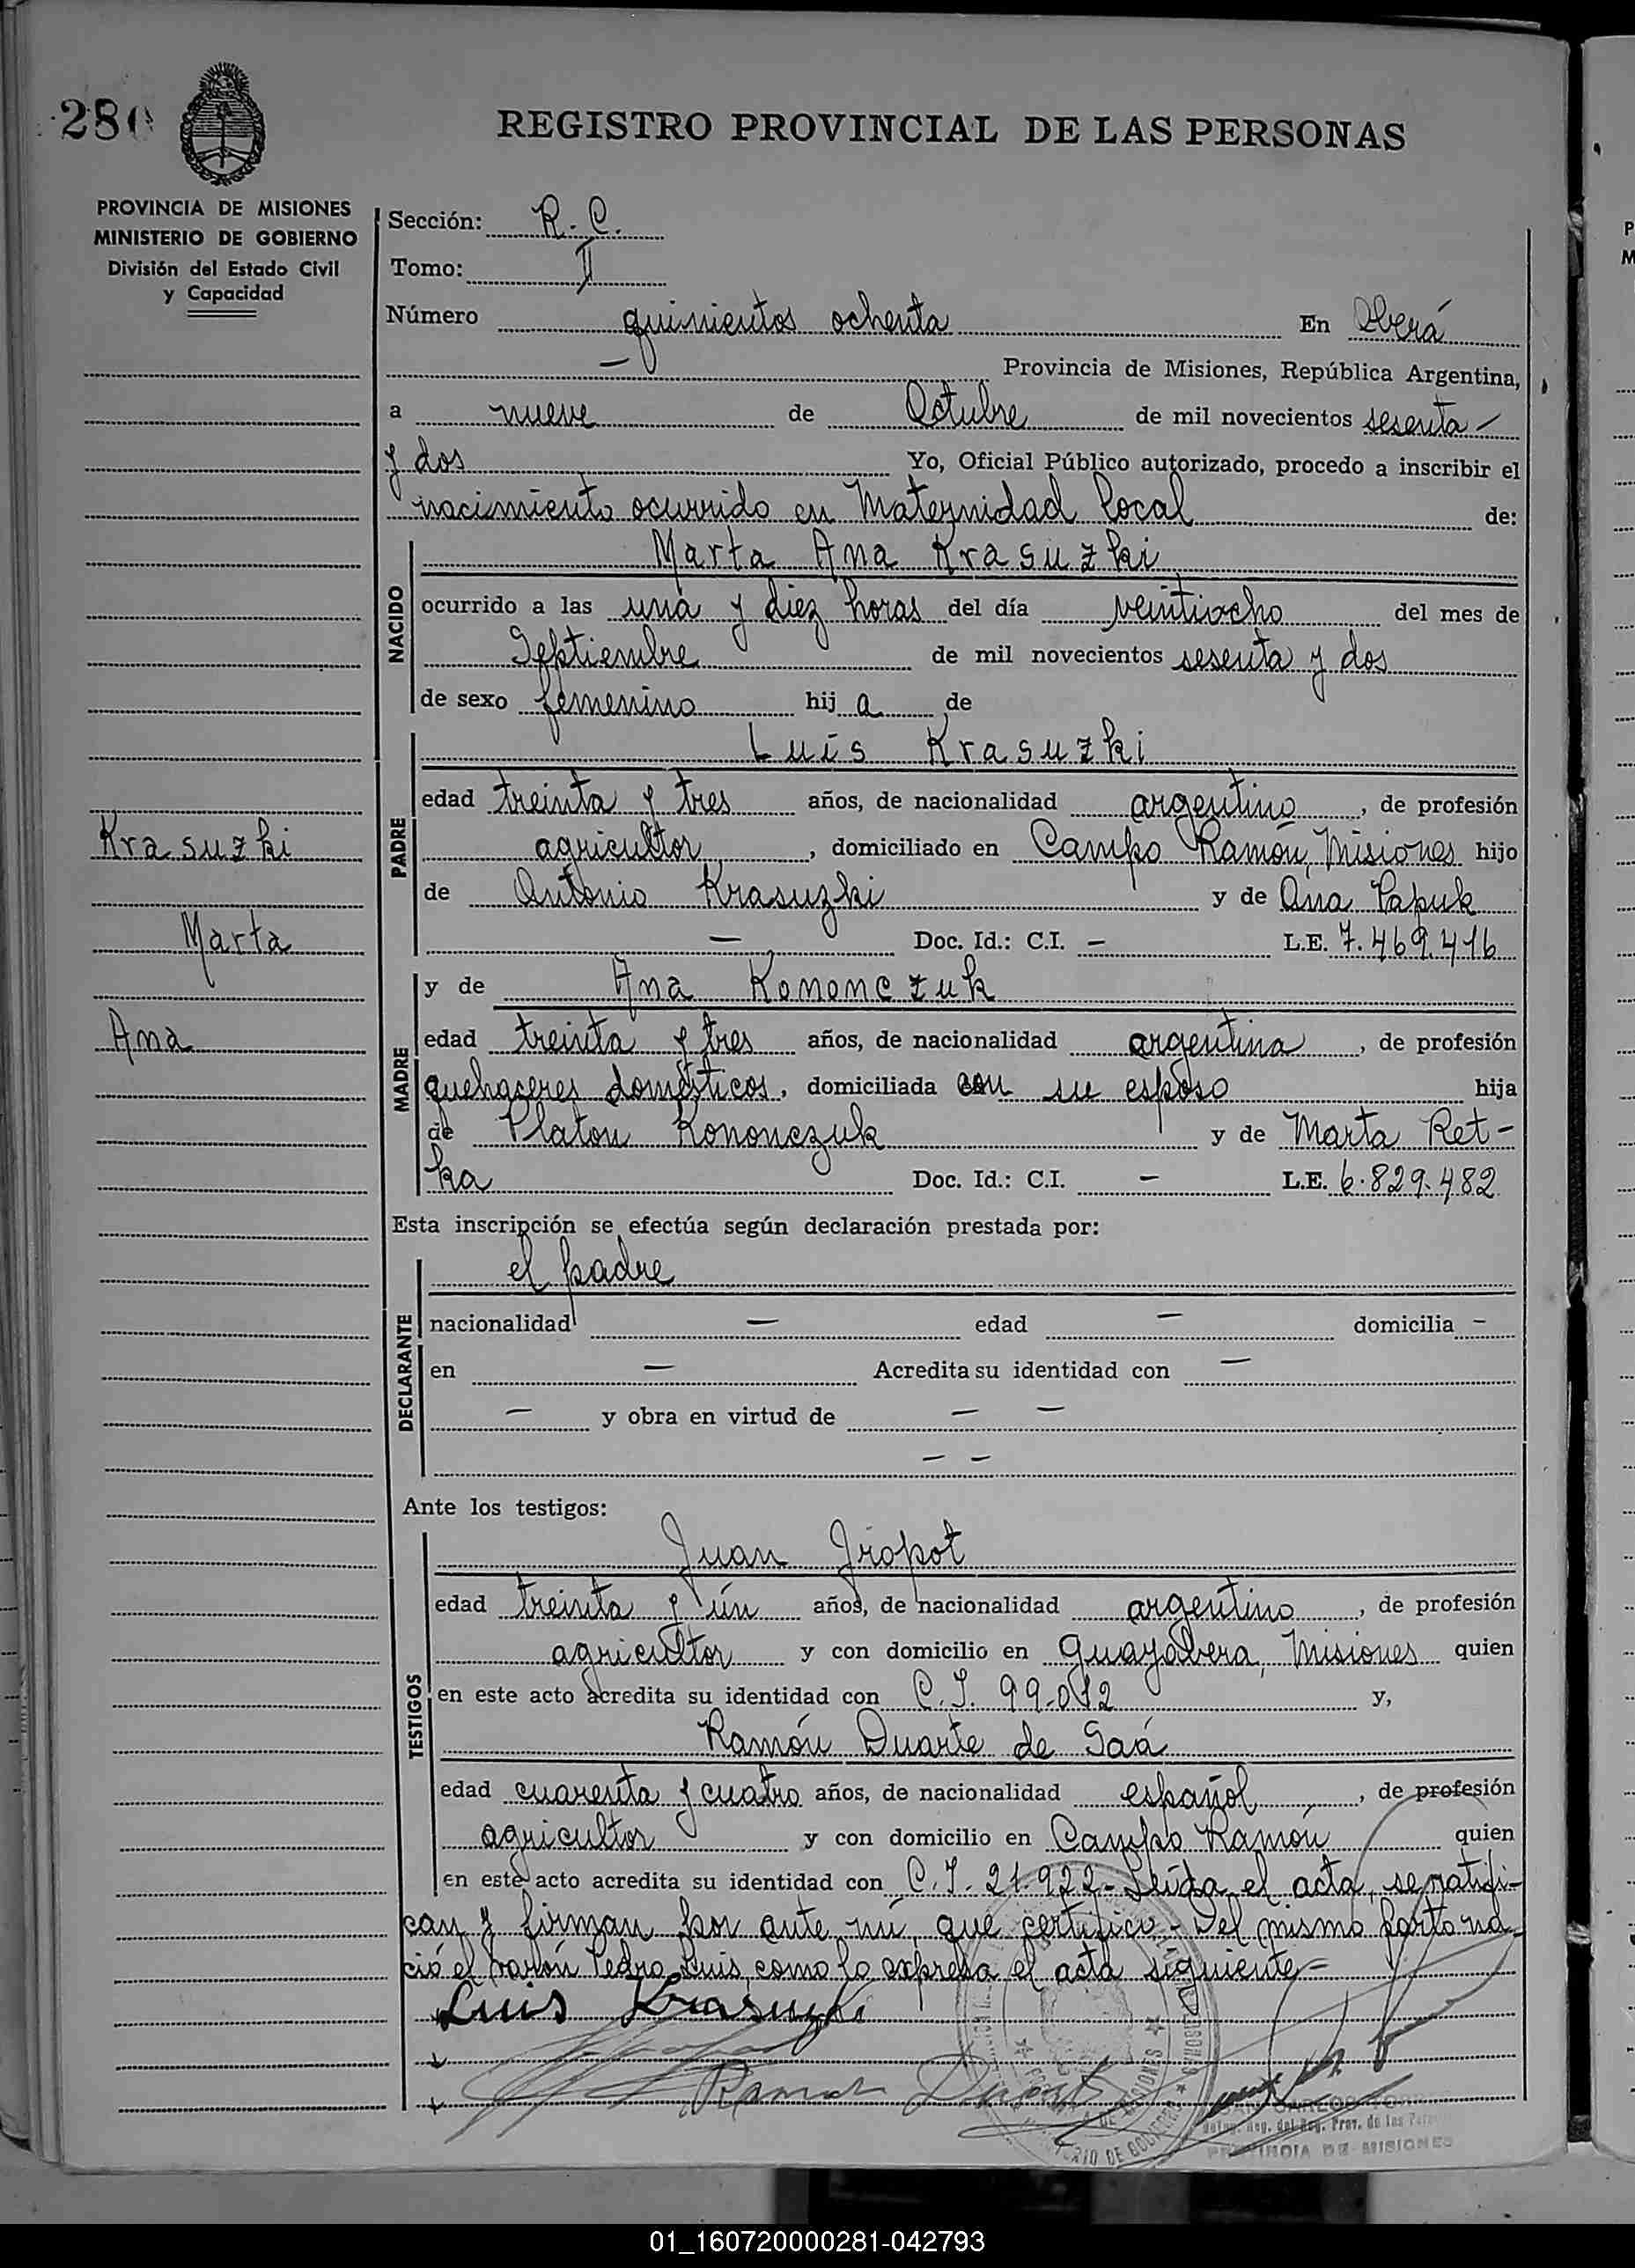 280
REGISTRO PROVINCIAL DE LAS PERSONAS
PROVINCIA DE MISIONES
MINISTERIO DE GOBIERNO
División del Estado Civil
y Capacidad
Sección: R. C.
Tomo: II
Número quinientos ochenta En Oberá
— Provincia de Misiones, República Argentina,
a nueve de Octubre de mil novecientos sesenta –
y dos Yo, Oficial Público autorizado, procedo a inscribir el
nacimiento ocurrido en Maternidad local de:
NACIDO
Marta Ana Krasuzki
ocurrido a las una y diez horas del día veintiocho del mes de
Septiembre de mil novecientos sesenta y dos
de sexo femenino hij a de
PADRE
Luis Krasuzki
edad treinta y tres años, de nacionalidad argentino, de profesión
agricultor, domiciliado en Campo Ramón, Misiones hijo
de Antonio Krasuzki y de Ana Papuk
— Doc. Id.: C.I. — L.E. 7.469.416
Krasuzki
Marta
Ana
MADRE
y de Ana Kononczuk
edad treinta y tres años, de nacionalidad argentina, de profesión
quehaceres domésticos, domiciliada con su esposo hija
de Platon Kononczuk y de Marta Ret-
ka Doc. Id.: C.I. — L.E. 6.829.482
Esta inscripción se efectúa según declaración prestada por:
DECLARANTE
el padre
nacionalidad — edad — domicilia –
en — Acredita su identidad con —
— y obra en virtud de — —
— —
Ante los testigos:
TESTIGOS
Juan Jropot
edad treinta y ún años, de nacionalidad argentino, de profesión
agricultor y con domicilio en Guayabera, Misiones quien
en este acto acredita su identidad con C.I. 99.012 y,
Ramón Duarte de Saá
edad cuarenta y cuatro años, de nacionalidad español, de profesión
agricultor y con domicilio en Campo Ramón quien
en este acto acredita su identidad con C.I. 21.922 - Leída el acta, se ratifi-
can y firman por ante mí, que certifico - Del mismo parto na-
ció el varón Pedro Luis, como lo expresa el acta siguiente -
Luis Krasuzki
Ramon Duarte
PROVINCIA DE MISIONES
01_160720000281-042793